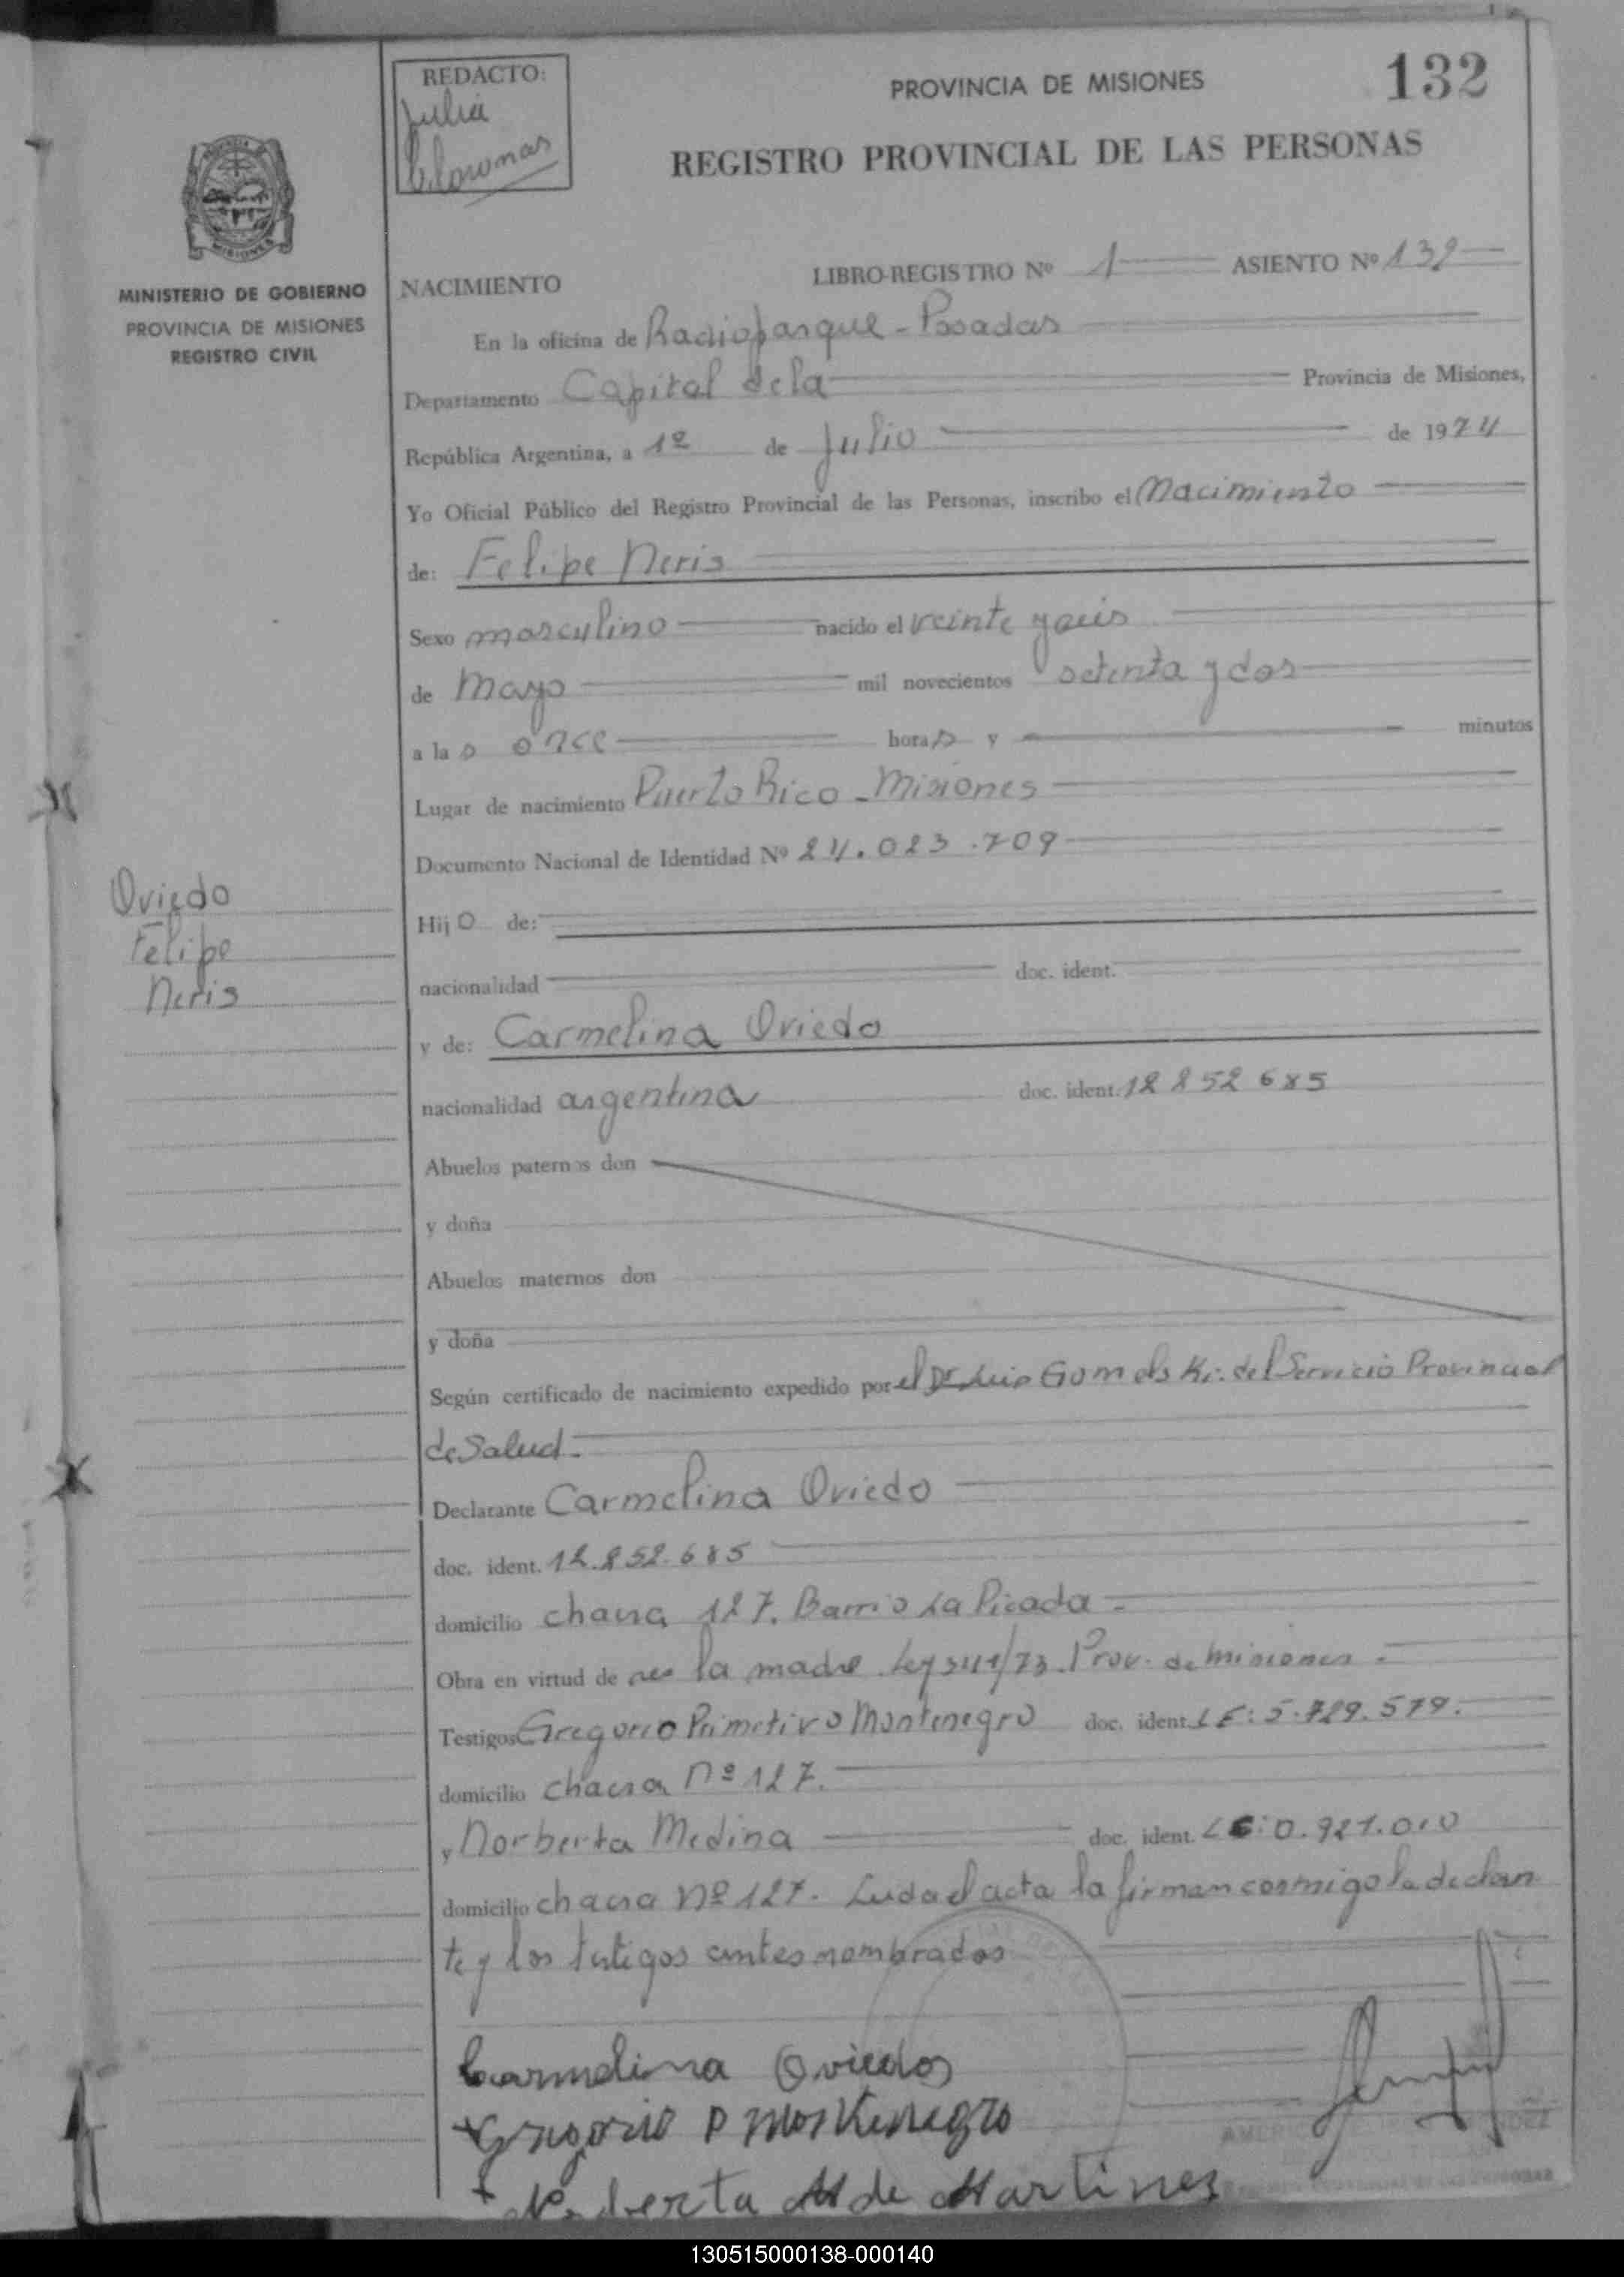 REDACTO:
Julia
PROVINCIA DE MISIONES
132
REGISTRO PROVINCIAL DE LAS PERSONAS
MISIONES
MINISTERIO DE GOBIERNO
PROVINCIA DE MISIONES
REGISTRO CIVIL
NACIMIENTO LIBRO-REGISTRO Nº 1 ASIENTO Nº 132
En la oficina de Radioparque - Posadas
Departamento Capital de la Provincia de Misiones,
República Argentina, a 1º de Julio de 1974
Yo Oficial Público del Registro Provincial de las Personas, inscribo el Nacimiento
de: Felipe Neris
Sexo masculino nacido el veinte y seis
de Mayo mil novecientos setenta y dos
a las once horas y minutos
Lugar de nacimiento Puerto Rico - Misiones
Documento Nacional de Identidad Nº 24.023.709
Oviedo
Felipe
Neris
Hijo de:
nacionalidad doc. ident.
y de: Carmelina Oviedo
nacionalidad argentina doc. ident. 12 852 685
Abuelos paternos don
y doña
Abuelos maternos don
y doña
Según certificado de nacimiento expedido por el Dr Luis Gomolski. del Servicio Provincial
de Salud.
Declarante Carmelina Oviedo
doc. ident. 12.852.685
domicilio chacra 127. Barrio La Picada -
Obra en virtud de ser la madre. Ley 241/73. Prov. de Misiones.
Testigos Gregorio Primitivo Montenegro doc. ident. LE: 5.729.579.
domicilio chacra Nº 127.
y Norberta Medina doc. ident. LC: 0.921.010
domicilio chacra Nº 127. Leida el acta la firman conmigo la declaran
te y los testigos antes nombrados
Carmelina Oviedos
Gregorio P Montenegro
Norberta M de Martines
130515000138-000140